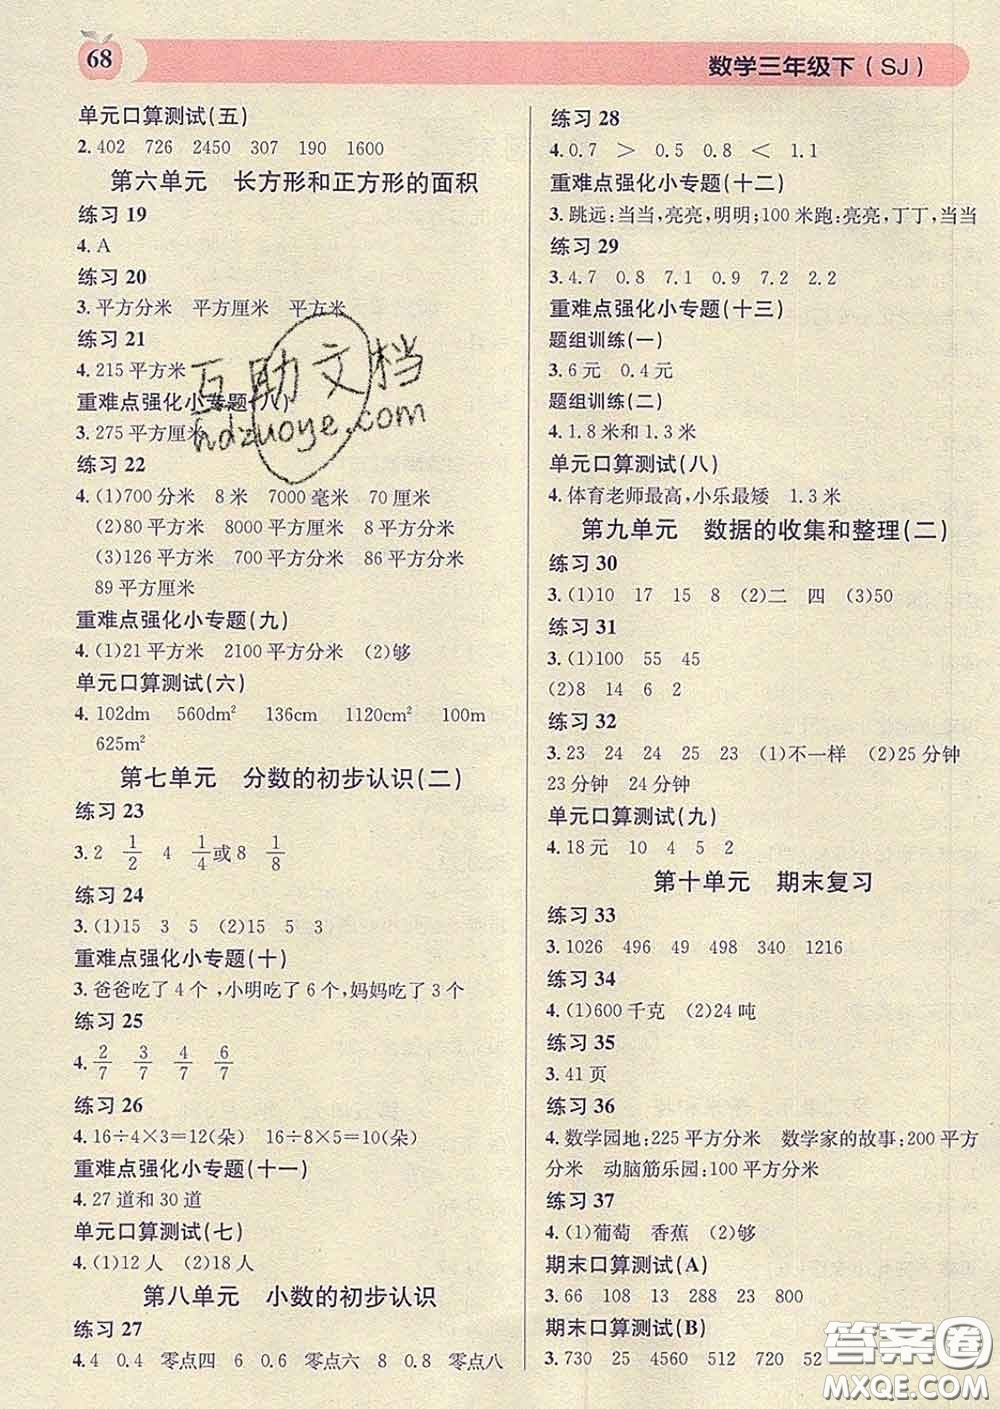 68
数学三年级下(SJ)
单元口算测试(五)
2. 402 726 2450 307 190 1600
第六单元 长方形和正方形的面积
练习 19
4. A
练习 20
3. 平方分米 平方厘米 平方米
练习 21
4. 215 平方米
重难点强化小专题(八)
3. 275 平方厘米
练习 22
4. (1)700 分米 8 米 7000 毫米 70 厘米
(2)80 平方米 8000 平方厘米 8 平方分米
(3)126 平方米 700 平方分米 86 平方米
89 平方厘米
重难点强化小专题(九)
4. (1)21 平方米 2100 平方分米 (2)够
单元口算测试(六)
4. 102dm 560dm² 136cm 1120cm² 100m
625m²
第七单元 分数的初步认识(二)
练习 23
3. 2 1/2 4 1/4或 8 1/8
练习 24
3. (1)15 3 5 (2)15 5 3
重难点强化小专题(十)
3. 爸爸吃了 4 个,小明吃了 6 个,妈妈吃了 3 个
练习 25
4. 2/7 3/7 4/7 6/7
练习 26
4. 16÷4×3=12(朵) 16÷8×5=10(朵)
重难点强化小专题(十一)
4. 27 道和 30 道
单元口算测试(七)
4. (1)12 人 (2)18 人
第八单元 小数的初步认识
练习 27
4. 4 0.4 零点四 6 0.6 零点六 8 0.8 零点八
练习 28
4. 0.7 > 0.5 0.8 < 1.1
重难点强化小专题(十二)
3. 跳远:当当,亮亮,明明;100 米跑:亮亮,丁丁,当当
练习 29
3. 4.7 0.8 7.1 0.9 7.2 2.2
重难点强化小专题(十三)
题组训练(一)
3. 6 元 0.4 元
题组训练(二)
4. 1.8 米和 1.3 米
单元口算测试(八)
4. 体育老师最高,小乐最矮 1.3 米
第九单元 数据的收集和整理(二)
练习 30
3. (1)10 17 15 8 (2)二 四 (3)50
练习 31
3. (1)100 55 45
(2)8 14 6 2
练习 32
3. 23 24 24 25 23 (1)不一样 (2)25 分钟
23 分钟 24 分钟
单元口算测试(九)
4. 18 元 10 4 5 2
第十单元 期末复习
练习 33
3. 1026 496 49 498 340 1216
练习 34
4. (1)600 千克 (2)24 吨
练习 35
3. 41 页
练习 36
4. 数学园地:225 平方分米 数学家的故事:200 平方
分米 动脑筋乐园:100 平方分米
练习 37
4. (1)葡萄 香蕉 (2)够
期末口算测试(A)
3. 66 108 13 288 23 800
期末口算测试(B)
3. 730 25 4560 512 720 52
互助文档
hdzuoye.com
答案圈
MXQE.COM